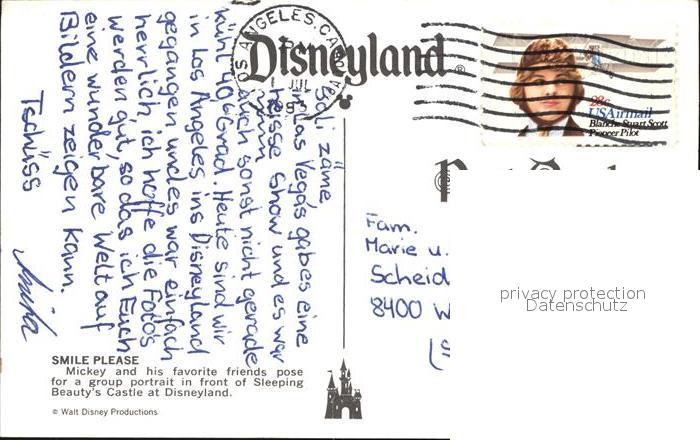 Disneyland®
LOS ANGELES, CA
JUL
28c
USAirmail
Blanche Stuart Scott
Pioneer Pilot
Sali zäme
In Las Vegas gabes eine
heisse Show und es war
auch sonst nicht gerade
kühl 40,6 Grad. Heute sind wir
in Los Angeles ins Disneyland
gegangen und es war einfach
herrlich, ich hoffe die Foto's
werden gut, so das ich Euch
eine wunderbare Welt auf
Bildern zeigen kann.
Tschüss
Fam.
Marie u.
Scheid
8400 W
privacy protection
Datenschutz
SMILE PLEASE
Mickey and his favorite friends pose
for a group portrait in front of Sleeping
Beauty's Castle at Disneyland.
© Walt Disney Productions